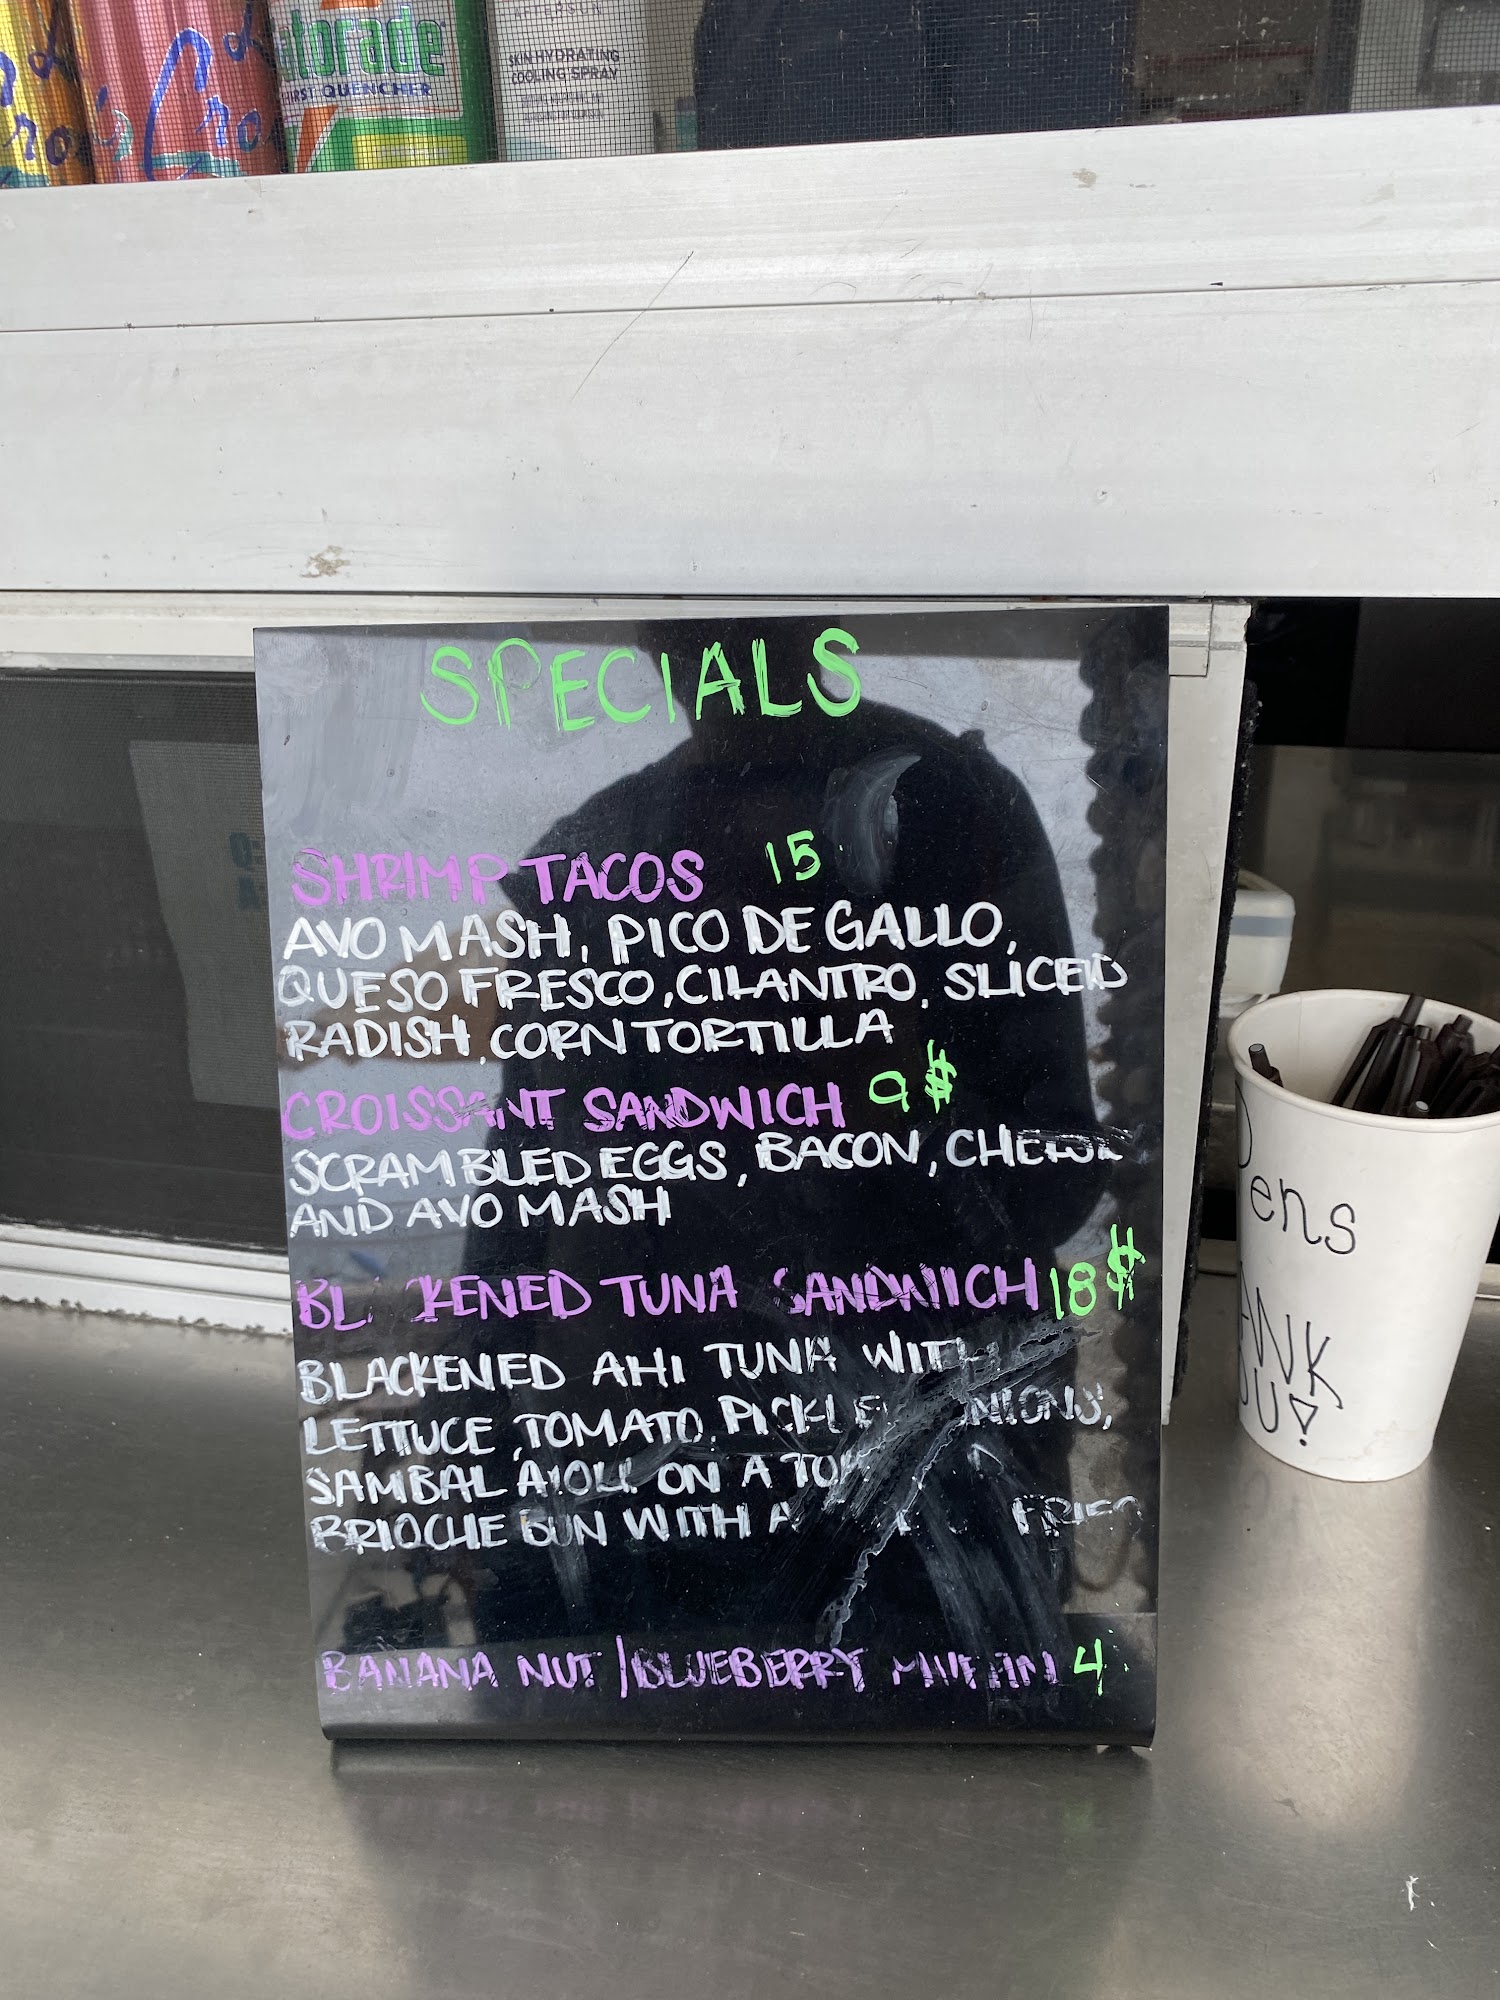 La Croix
Gatorade
THIRST QUENCHER
AFTERSUN
SKIN HYDRATING
COOLING SPRAY
SPECIALS
SHRIMP TACOS 15
AVO MASH, PICO DE GALLO,
QUESO FRESCO, CILANTRO, SLICED
RADISH, CORN TORTILLA
CROISSANT SANDWICH 9$
SCRAMBLED EGGS, BACON, CHEESE
AND AVO MASH
BLACKENED TUNA SANDWICH 18$
BLACKENED AHI TUNA WITH
LETTUCE, TOMATO, PICKLED ONIONS,
SAMBAL AIOLI ON A
BRIOCHE BUN WITH A FRIES
BANANA NUT / BLUEBERRY MUFFIN 4
Pens
THANK
YOU!